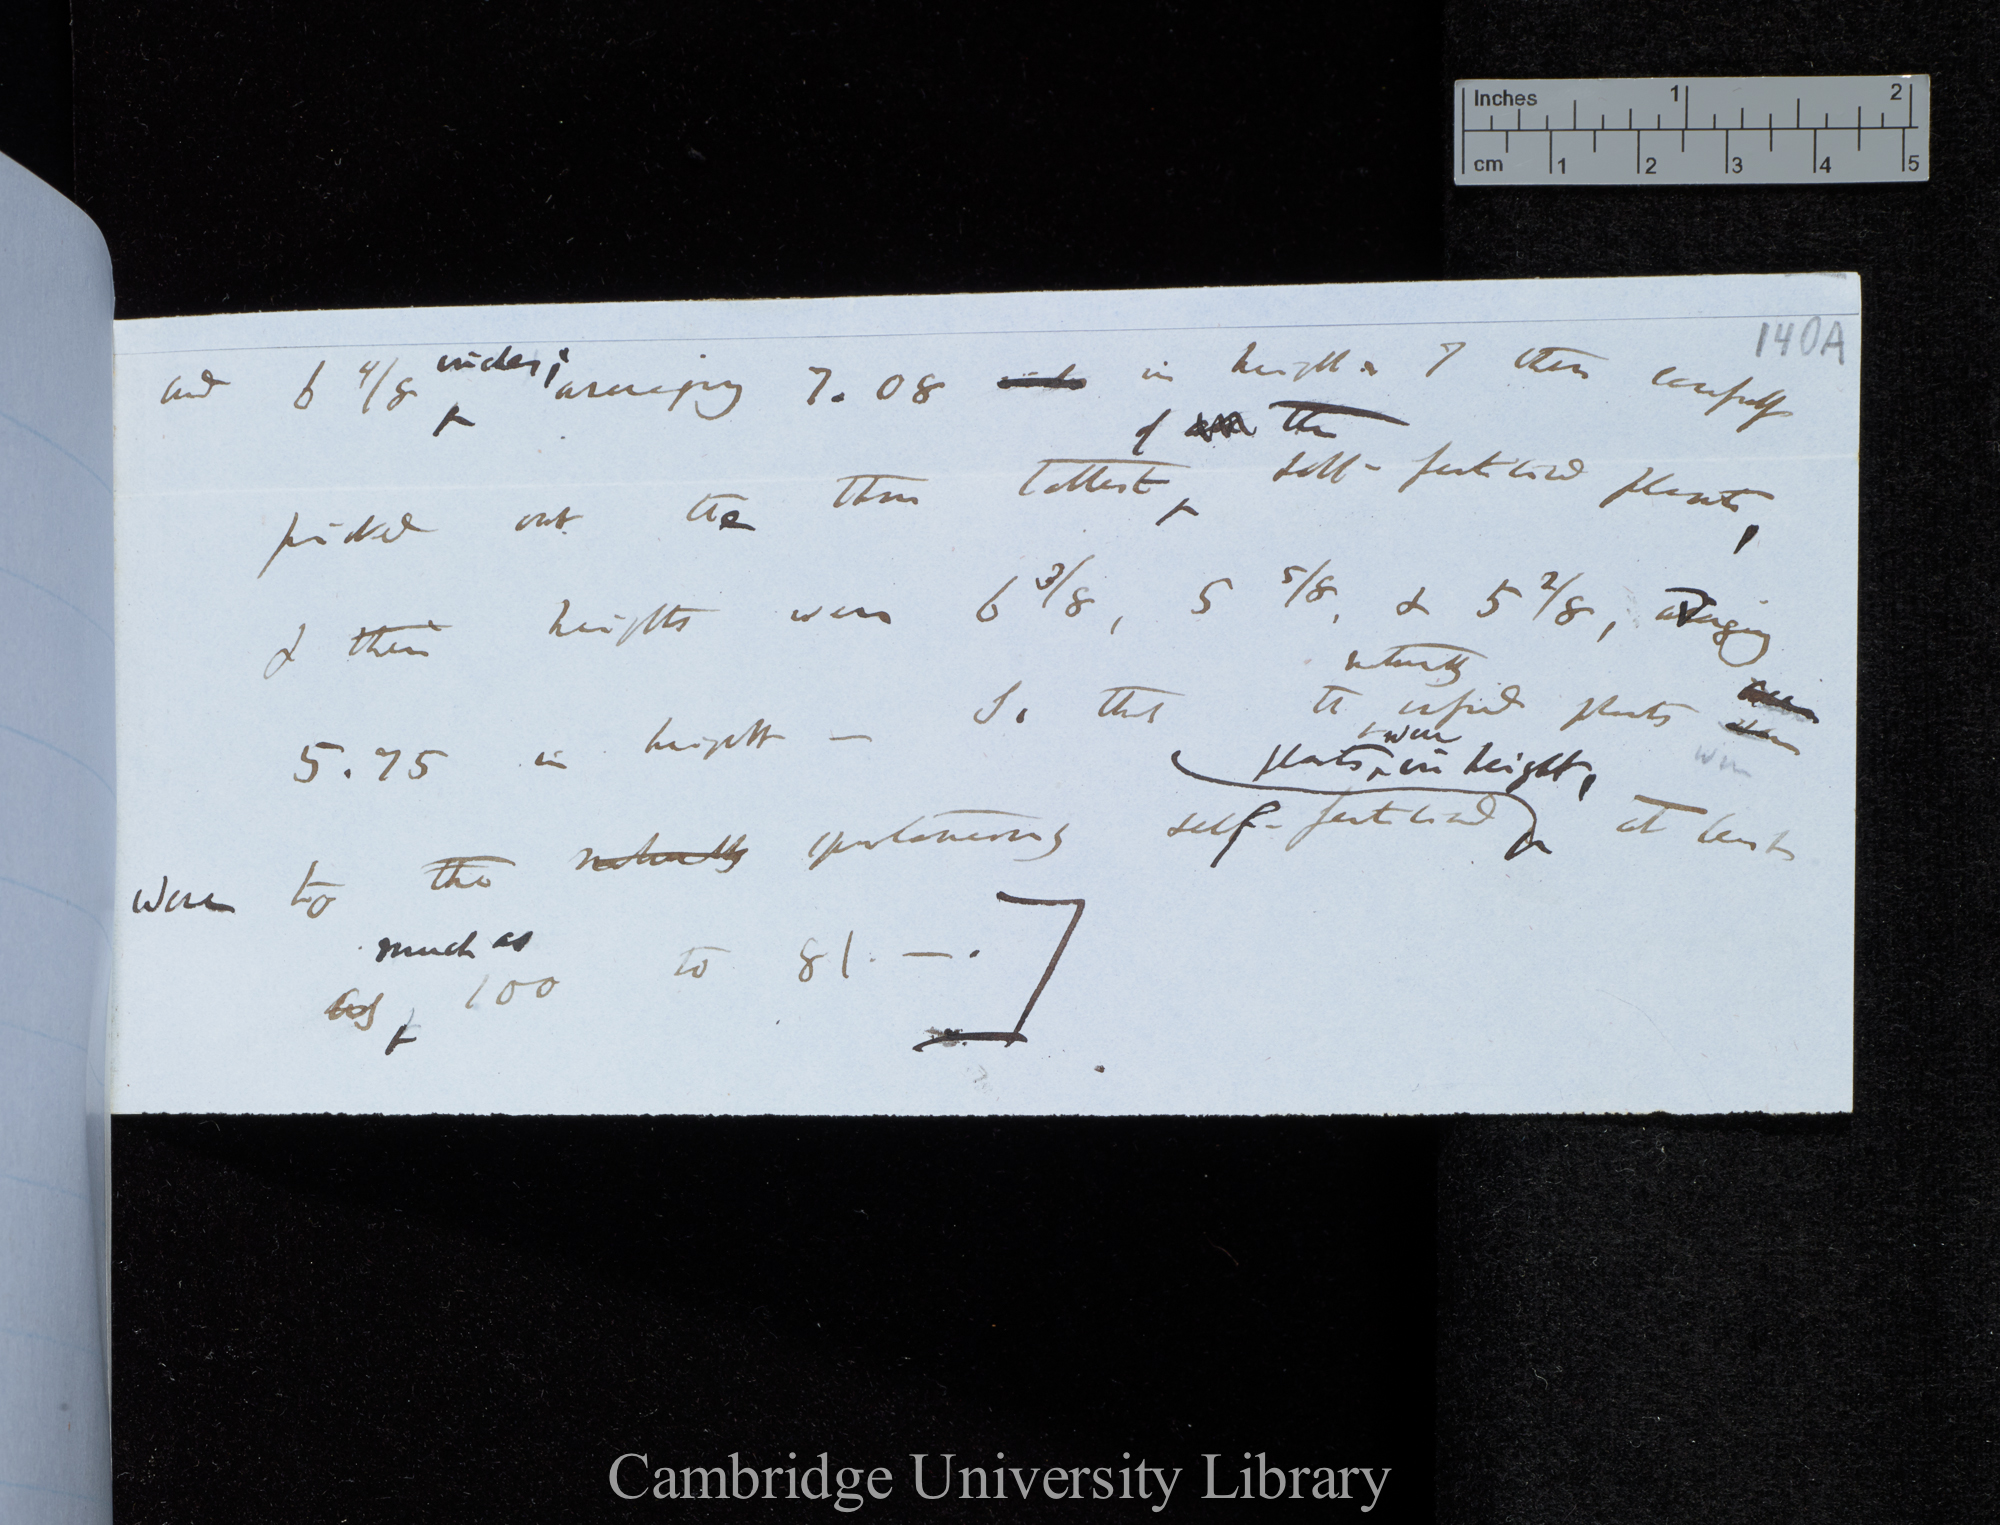 Inches 1 2
cm 1 2 3 4 5
140A
and 6 4/8 inches; averaging 7.08 in height. I then carefully
of the
picked out the three tallest self-fertilised plants,
& their heights were 6 3/8, 5 5/8, & 5 2/8, averaging
naturally
5.75 in height — So that the crossed plants
were
plants in height,
were to the naturally spontaneously self-fertilised at least
much as
as 100 to 81. —.
Cambridge University Library